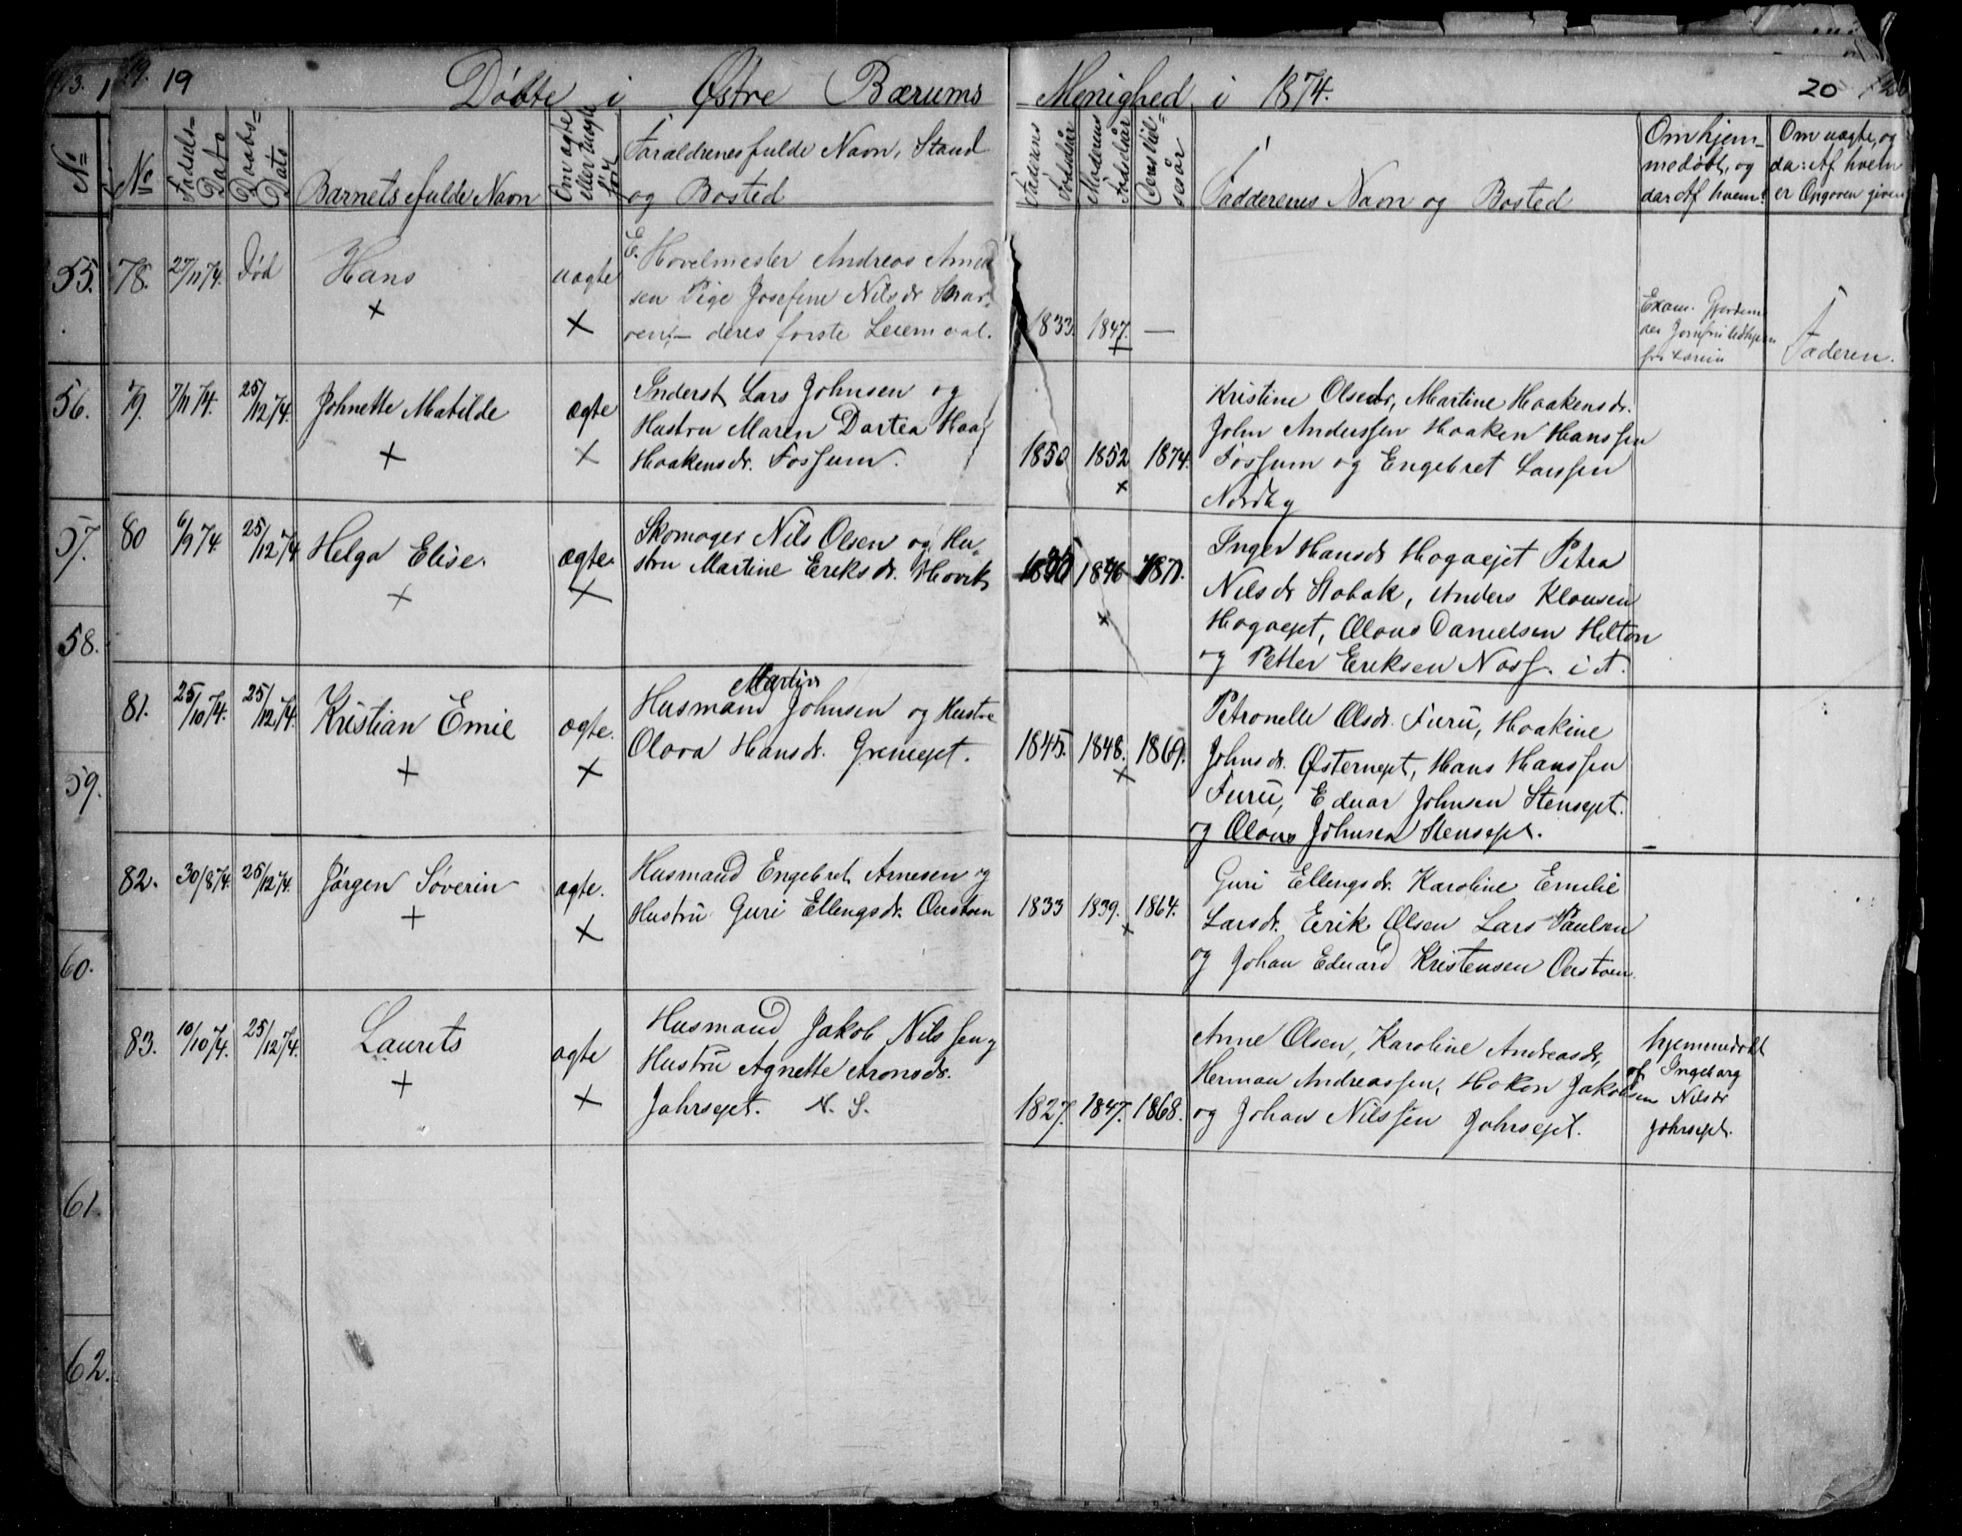 19 Døbte i Østre Bærums Menighed i 1874. 20
No
No
Fødsels=
Dato
Daabs=
Dato
Barnets fulde Navn
Om ægte
eller uægte
født
Forældrenes fulde Navn, Stand
og Bosted
Faderens
Fødselsår
Moderens
Fødselsår
Faddernes Navn og Bosted
Om hjem-
medøbt, og
da: Af hvem?
Om uægte, og
da: Af hvem
er Opgaven given
55.
78. 27/11 74. Død Hans uægte
Hovelmester Andreas
sen Pige Josefine Nilsdr
deres første Leiermaal.
1833. 1847. —
Exam. Gjordem
Faderen.
56.
79. 7/11 74. 25/12 74. Johnette Matilde ægte
Inderst Lars Johnsen og
Hustru Maren Dortea Haa
Haakensdr. Fossum.
1850 1852 1874.
Kristine Olsdr, Martine Haakensdr.
John Anderssen Haaken Hanssen
Fossum og Engebret Larssen
Nordby
57.
80 6/9 74. 25/12 74 Helga Elise. ægte.
Skomager Nils Olsen og Hu=
stru Martine Eriksdr. Høvik
1846
Inger Hansdr Hagaejet Petra
Nilsdr Stabæk, Anders Klausen
Hagaejet, Olaus Danielsen Hilton
og Petter Eriksen
58.
81. 25/10 74. 25/12 74. Kristian Emil ægte.
Martin
Husmand Johnsen og Hustru
Olava Hansdr. Griniejet.
1845. 1848. 1869.
Petronelle Olsdr. Furu, Haakine
Johnsdr. Østernejet, Hans Hanssen
Furu, Edvar Johnsen Stensejet.
og Olaus Johnsen Stensejet.
59.
82. 30/8 74. 26/12 74. Jørgen Søverin ægte.
Husmand Engebret Arnesen og
Hustru Guri Ellingsdr. Oustøen
1833 1839. 1864.
Guri Ellingsdr. Karoline Emilie
Larsdr. Erik Olsen Lars Paulsen
og Johan Edvard Kristensen Oustøen.
60.
83. 10/10 74. 25/12 74. Laurits ægte
Husmand Jakob Nilssen og
Hustru Agnette Aronsdr.
Jahrsejet. N. S.
1827. 1847. 1868.
Anne Olsen, Karoline Andreasdr,
Herman Andreassen, Hakon Jakobsen
og Johan Nilssen Jahrsejet.
hjemmedøbt
af Ingeborg
Nilsdr
Jahrsejet.
61.
62.